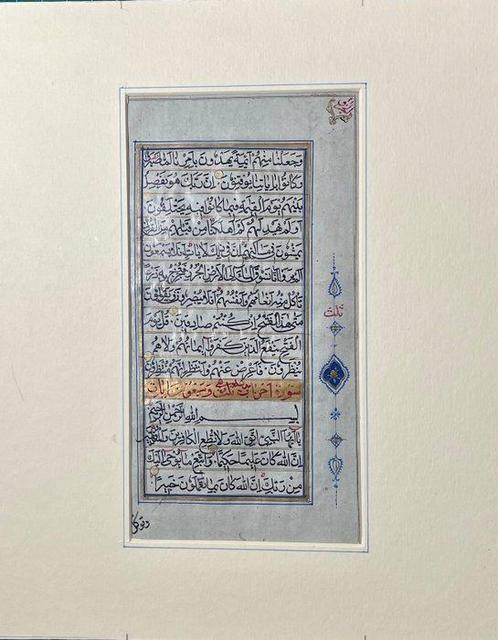 وجعلنا منهم ائمة يهدون بامرنا لما صبروا
وكانوا باياتنا يوقنون ان ربك هو يفصل
بينهم يوم القيمة فيما كانوا فيه يختلفون
اولم يهد لهم كم اهلكنا من قبلهم من القرون
يمشون في مساكنهم ان في ذلك لايات افلا يسمعون
اولم يروا انا نسوق الماء الى الارض الجرز فنخرج به زرعا
تاكل منه انعامهم وانفسهم افلا يبصرون ويقولون
متى هذا الفتح ان كنتم صادقين قل يوم
الفتح لا ينفع الذين كفروا ايمانهم ولا هم
ينظرون فاعرض عنهم وانتظر انهم منتظرون
سورة احزاب ثلث وسبعون ايات
بسم الله الرحمن الرحيم
يا ايها النبي اتق الله ولا تطع الكافرين والمنافقين
ان الله كان عليما حكيما واتبع ما يوحى اليك
من ربك ان الله كان بما تعملون خبيرا
وتوكل
ثلث